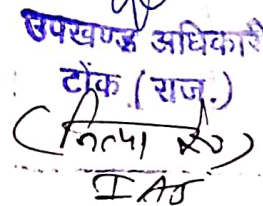 उपखण्ड अधिकारी
टोंक (राज.)
(नित्या
IAS